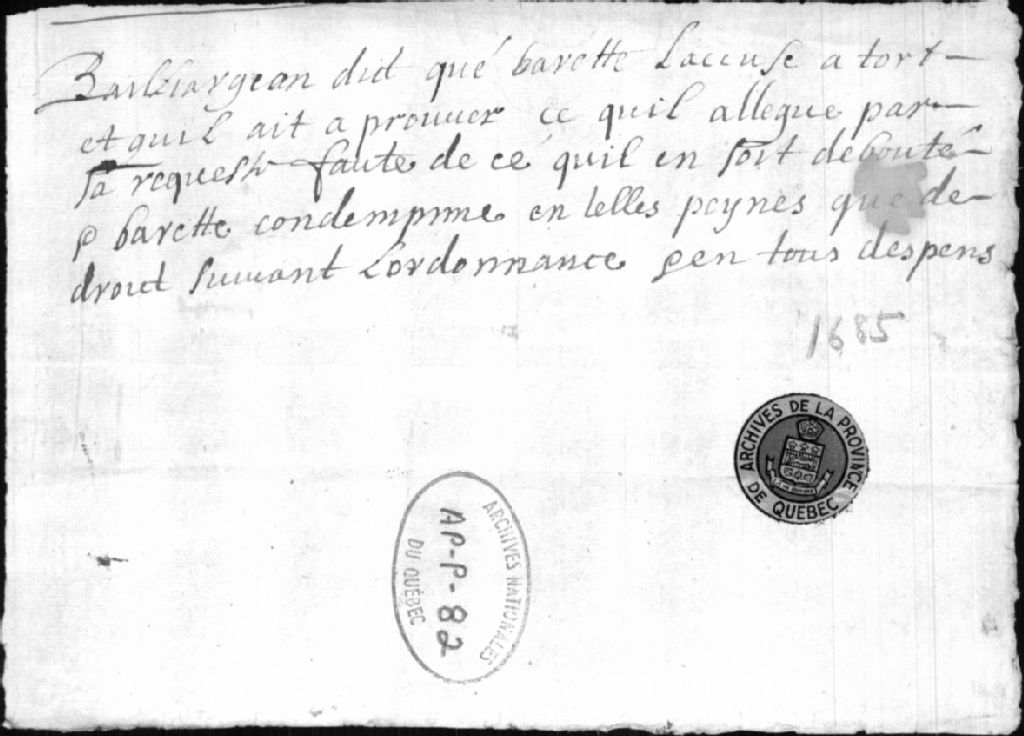 Bailliargeon dict qué barette Laccuse a tort
et quil ait a prouuer ce quil allegue par
sa requeste faute de cé quil en soit débouté
& barette condempnne en telles peynes que de
droict suiuant Lordonnance & en tous despens
1685
ARCHIVES DE LA PROVINCE
DE QUÉBEC
ARCHIVES NATIONALES
AP-P-82
DU QUÉBEC